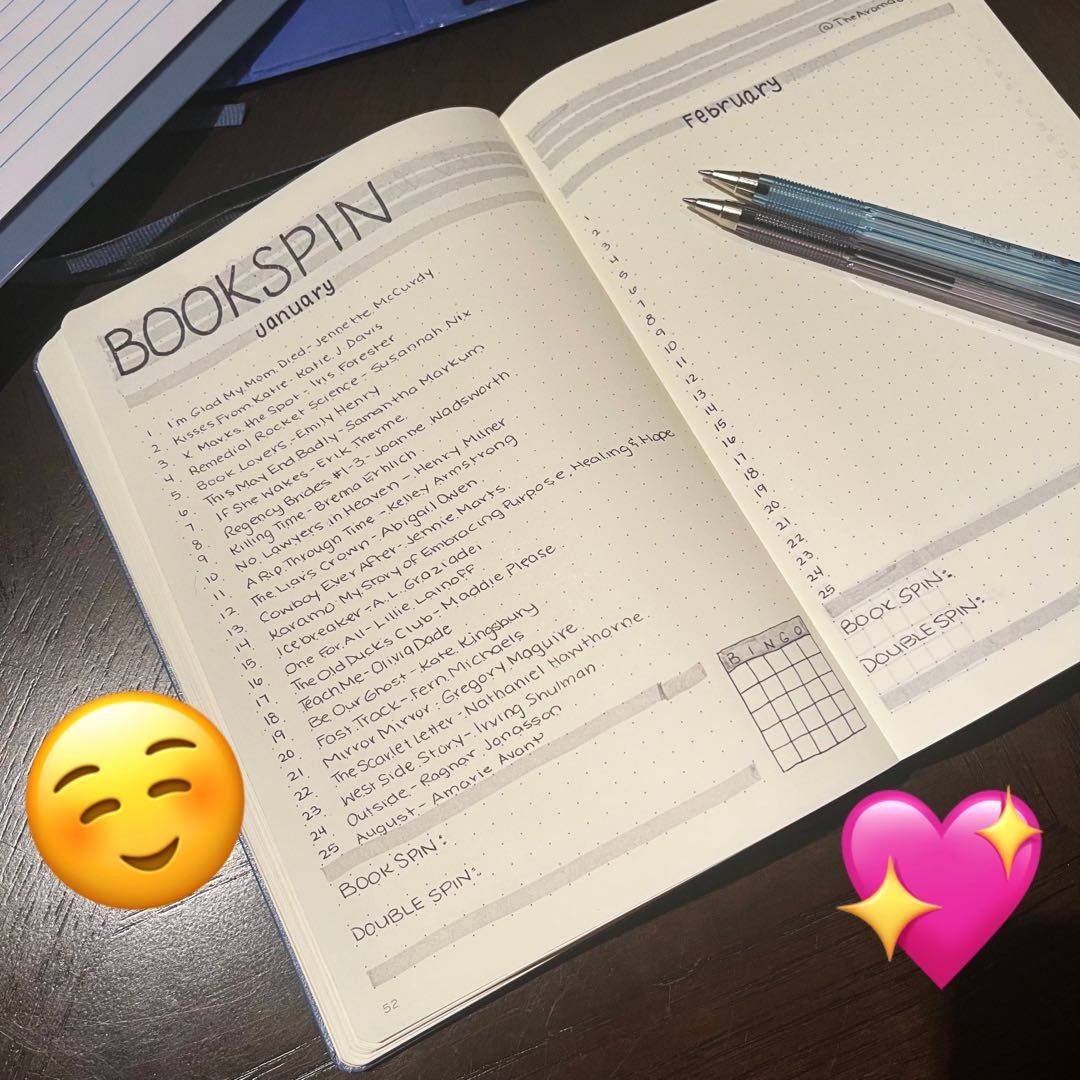 BOOKSPIN
January
1. I'm Glad My Mom Died - Jennette McCurdy
2. Kisses From Katie - Katie J Davis
3. X Marks the Spot - Iris Forester
4. Remedial Rocket Science - Susannah Nix
5. Book Lovers - Emily Henry
6. This May End Badly - Samantha Markum
7. If She Wakes - Erik Therme
8. Regency Brides #1-3 - Joanne Wadsworth
9. Killing Time - Brenna Erhlich
10. No Lawyers in Heaven - Henry Milner
11. A Rip Through Time - Kelley Armstrong
12. The Liar's Crown - Abigail Owen
13. Cowboy Ever After - Jennie Marts
14. Karamo: My Story of Embracing Purpose, Healing & Hope
15. Icebreaker - A.L. Graziadei
16. One For All - Lillie Lainoff
17. The Old Ducks Club - Maddie Please
18. Teach Me - Olivia Dade
19. Be Our Ghost - Kate Kingsbury
20. Fast Track - Fern Michaels
21. Mirror Mirror - Gregory Maguire
22. The Scarlet Letter - Nathaniel Hawthorne
23. West Side Story - Irving Shulman
24. Outside - Ragnar Jonasson
25 August - Amarie Avant
BOOKSPIN:
DOUBLE SPIN:
BINGO
52
February
1
2
3
4
5
6
7
8
9
10
11
12
13
14
15
16
17
18
19
20
21
22
23
24
25
BOOKSPIN:
DOUBLESPIN: